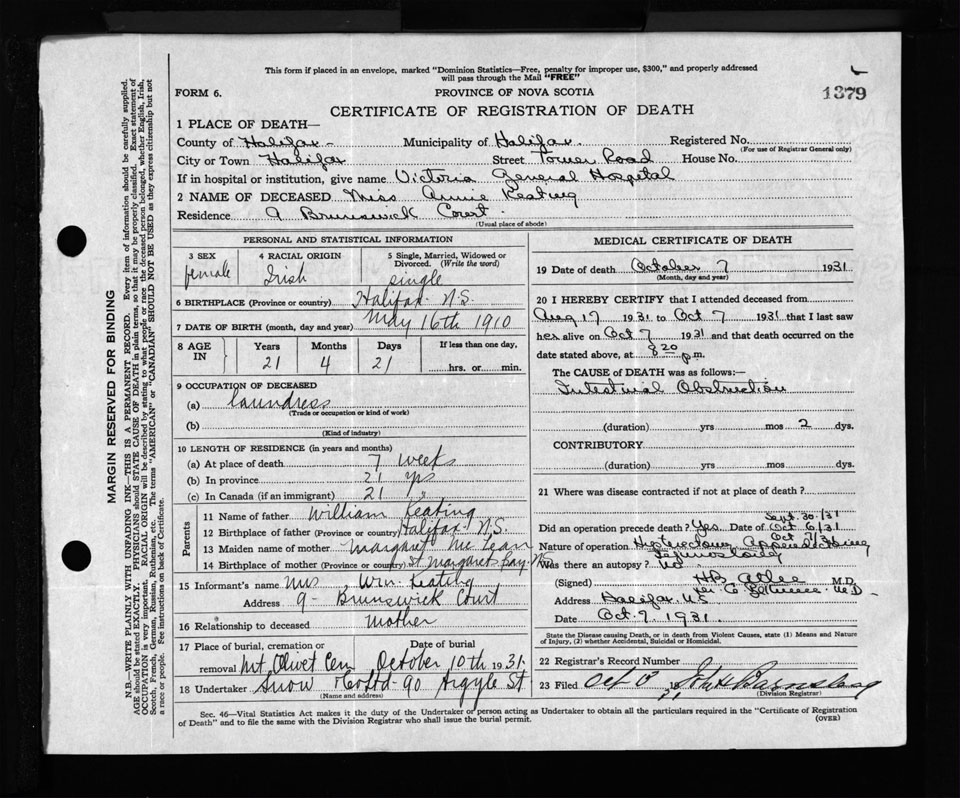 This form if placed in an envelope, marked "Dominion Statistics—Free, penalty for improper use, $300," and properly addressed
will pass through the Mail "FREE"
FORM 6.
PROVINCE OF NOVA SCOTIA
1379
CERTIFICATE OF REGISTRATION OF DEATH
1 PLACE OF DEATH—
County of Halifax Municipality of Halifax Registered No.
(For use of Registrar General only)
City or Town Halifax Street Tower Road House No.
If in hospital or institution, give name Victoria General Hospital
2 NAME OF DECEASED Miss Annie Keating
Residence 9 Brunswick Court
(Usual place of abode)
PERSONAL AND STATISTICAL INFORMATION
3 SEX 4 RACIAL ORIGIN 5 Single, Married, Widowed or Divorced. (Write the word)
female Irish single
6 BIRTHPLACE (Province or country) Halifax N.S.
7 DATE OF BIRTH (month, day and year) May 16th 1910
8 AGE IN Years Months Days If less than one day,
21 4 21 hrs. or min.
9 OCCUPATION OF DECEASED
(a) Laundress
(Trade or occupation or kind of work)
(b)
(Kind of industry)
10 LENGTH OF RESIDENCE (in years and months)
(a) At place of death 7 weeks
(b) In province 21 yrs
(c) In Canada (if an immigrant) 21 "
Parents
11 Name of father William Keating
12 Birthplace of father (Province or country) Halifax N.S.
13 Maiden name of mother Margaret McLean
14 Birthplace of mother (Province or country) St Margarets Bay. N.S.
15 Informant's name Mrs Wm. Keating
Address 9 - Brunswick Court
16 Relationship to deceased Mother
17 Place of burial, cremation or removal Date of burial
Mt. Olivet Cem October 10th 1931.
18 Undertaker Snow & Co Ltd - 90 Argyle St
(Name and address)
MEDICAL CERTIFICATE OF DEATH
19 Date of death October 7 1931
(Month, day and year)
20 I HEREBY CERTIFY that I attended deceased from
Aug 17 1931 to Oct 7 1931 that I last saw
her alive on Oct 7 1931 and that death occurred on the
date stated above, at 8 20 p.m.
The CAUSE OF DEATH was as follows:—
Intestinal Obstruction
(duration) yrs mos 2 dys.
CONTRIBUTORY
(duration) yrs mos dys.
21 Where was disease contracted if not at place of death?
Sept 30/31
Did an operation precede death? Yes Date of Oct 6/31
Oct 7/31
Nature of operation
Was there an autopsy? No
(Signed) HB Atlee M.D.
M.D.
Address Halifax N.S
Date Oct. 9. 1931.
State the Disease causing Death, or in death from Violent Causes, state (1) Means and Nature of Injury, (2) whether Accidental, Suicidal or Homicidal.
22 Registrar's Record Number
23 Filed Oct 13
(Division Registrar)
Sec. 46—Vital Statistics Act makes it the duty of the Undertaker or person acting as Undertaker to obtain all the particulars required in the "Certificate of Registration
of Death" and to file the same with the Division Registrar who shall issue the burial permit.
(OVER)
MARGIN RESERVED FOR BINDING
N.B.—WRITE PLAINLY WITH UNFADING INK—THIS IS A PERMANENT RECORD. Every item of information should be carefully supplied.
AGE should be stated EXACTLY. PHYSICIANS should STATE CAUSE OF DEATH in plain terms, so that it may be properly classified. Exact statement of
OCCUPATION is very important. RACIAL ORIGIN will be described by stating to what people or race the deceased person belonged, whether English, Irish,
Scotch, French, German, Russian, Ruthenian, etc. The terms "AMERICAN" or "CANADIAN" SHOULD NOT BE USED as they express citizenship but not
a race or people. See instructions on back of Certificate.